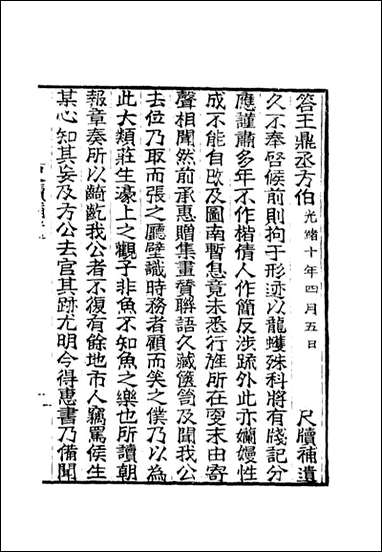 答王鼎丞方伯 光緒十年四月五日 尺牘補遺
久不奉啓候前則拘于形迹以龍蠖殊科將有牋記分
應謹肅多年不作楷倩人作簡反涉疏外此亦嬾嫚性
成不能自改及圖南暫息竟未悉行旌所在耎末由寄
聲相聞然前承惠贈集畫贊聯語久藏篋笥及聞我公
去位乃取而張之廳壁識時務者顧而笑之僕乃以為
此大類莊生濠上之觀子非魚不知魚之樂也所讀朝
報章奏所以齮齕我公者不復有餘地市人竊罵侯生
某心知其妄及方公去官其跡尤明今得惠書乃備聞